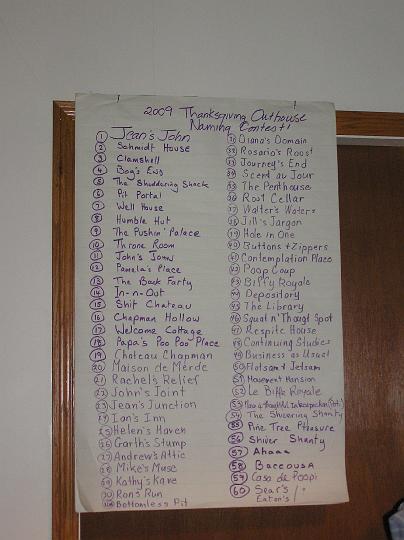 2009 Thanksgiving Outhouse
Naming Contest!
1 Jean's John
2 Schmidt House
3 Clamshell
4 Bog's End
5 The Shuddering Shack
6 Pit Portal
7 Well House
8 Humble Hut
9 The Pushin' Palace
10 Throne Room
11 John's John
12 Pamela's Place
13 The Back Forty
14 In-n-Out
15 Shit Chateau
16 Chapman Hollow
17 Welcome Cottage
18 Papa's Poo Poo Place
19 Chateau Chapman
20 Maison de Merde
21 Rachel's Relief
22 John's Joint
23 Jean's Junction
27 Ian's Inn
25 Helen's Haven
26 Garth's Stump
27 Andrew's Attic
28 Mike's Muse
29 Kathy's Kave
30 Ron's Run
Bottomless Pit
31 Diana's Domain
32 Rosario's Roost
33 Journey's End
34 Scent au Jour
35 The Penthouse
36 Root Cellar
37 Walter's Waters
38 Jill's Jargon
39 Hole in One
40 Buttons + Zippers
41 Contemplation Place
42 Poop Coup
43 Biffy Royale
44 Depository
45 The Library
46 Squat n' Thought Spot
47 Respite House
48 Continuing Studies
49 Business as Usual
50 Flotsam + Jetsam
51 Movement Mansion
52 Le Biffe Royale
53
54 The Shivering Shanty
55 Pine Tree Pleasure
56 Shiver Shanty
57 Ahaaa
58 Baccousa
59 Casa de Poopi
60 Sear's /
Eaton's